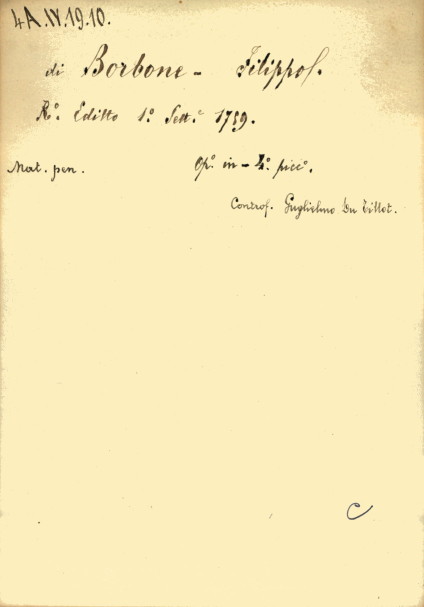 4A.IV.19.10.
di Borbone - Filippo.
R.º Editto 1.º Sett.e 1759.
Mat. pen. Op.º in - 4.º picc.º.
Controf. Guglielmo Du Tillot.
C